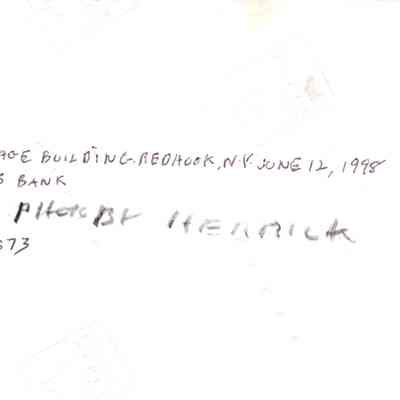 AGE BUILDING. REDHOOK, N.Y. JUNE 12, 1998
BANK
PHOTO BY HERRICK
573